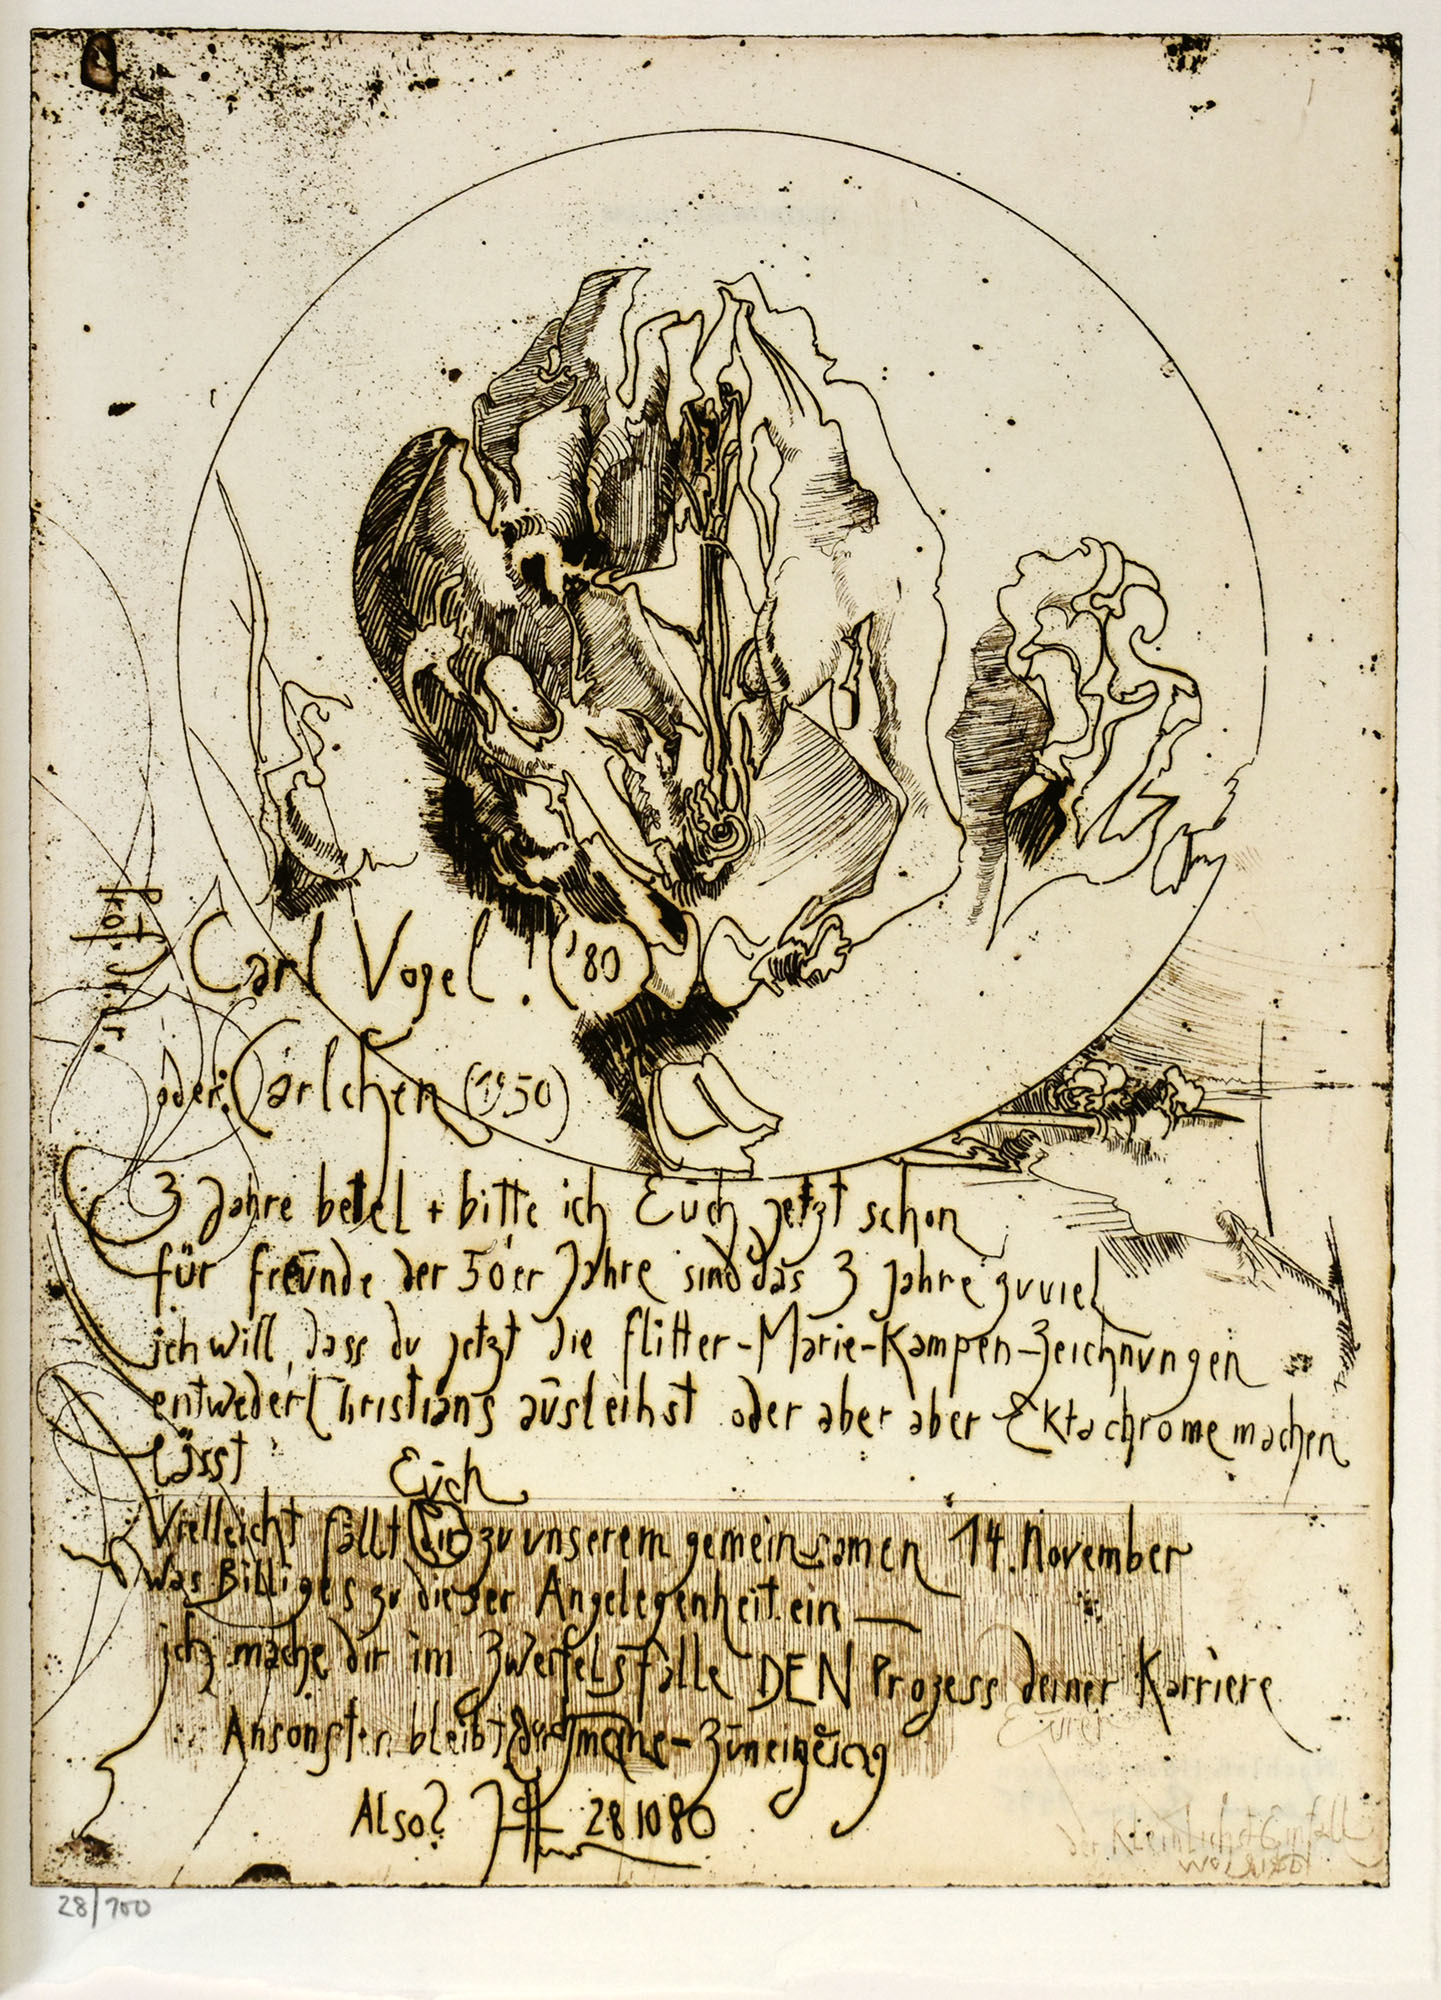 Prof. Dr.
Carl Vogel! ('80)
oder: Carlchen (1950)
3 Jahre bettel + bitte ich Euch jetzt schon
für freunde der 50'er Jahre sind das 3 Jahre zuviel
ich will, dass du jetzt die flitter-Marie-Kampen-Zeichnungen
entweder Christians ausleihst oder aber aber Ektachrome machen
lässt
Euch
Vielleicht fällt dir zu unserem gemeinsamen 14. November
was Billiges zu dieser Angelegenheit ein —
ich mache dir im Zweifelsfalle DEN Prozess deiner Karriere
Ansonsten bleibt dir meine - Zuneigung
Also? 281080
Eurer
der kleinlichst Einfall
28/100